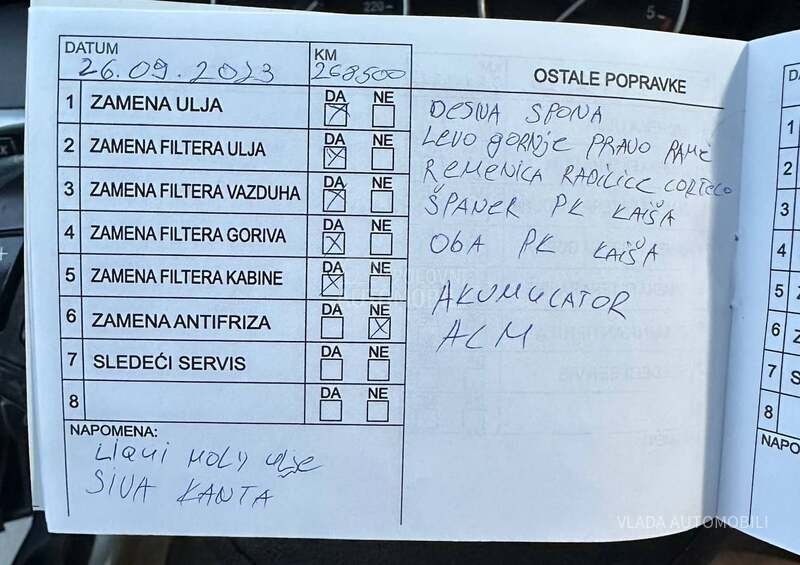 220
5
DATUM
26.09.2023
KM
268500
OSTALE POPRAVKE
1 ZAMENA ULJA DA NE
2 ZAMENA FILTERA ULJA DA NE
3 ZAMENA FILTERA VAZDUHA DA NE
4 ZAMENA FILTERA GORIVA DA NE
5 ZAMENA FILTERA KABINE DA NE
6 ZAMENA ANTIFRIZA DA NE
7 SLEDEĆI SERVIS DA NE
8 DA NE
NAPOMENA:
LIQUI MOLY ulje
SIVA KANTA
DESNA SPONA
LEVO GORNJE PRAVO RAME
REMENICA RADILICE CORTECO
ŠPANER PK KAIŠA
OBA PK KAIŠA
AKUMULATOR
ALM
1
2
3
4
5
6
7
8
NAPO
VLADA AUTOMOBILI